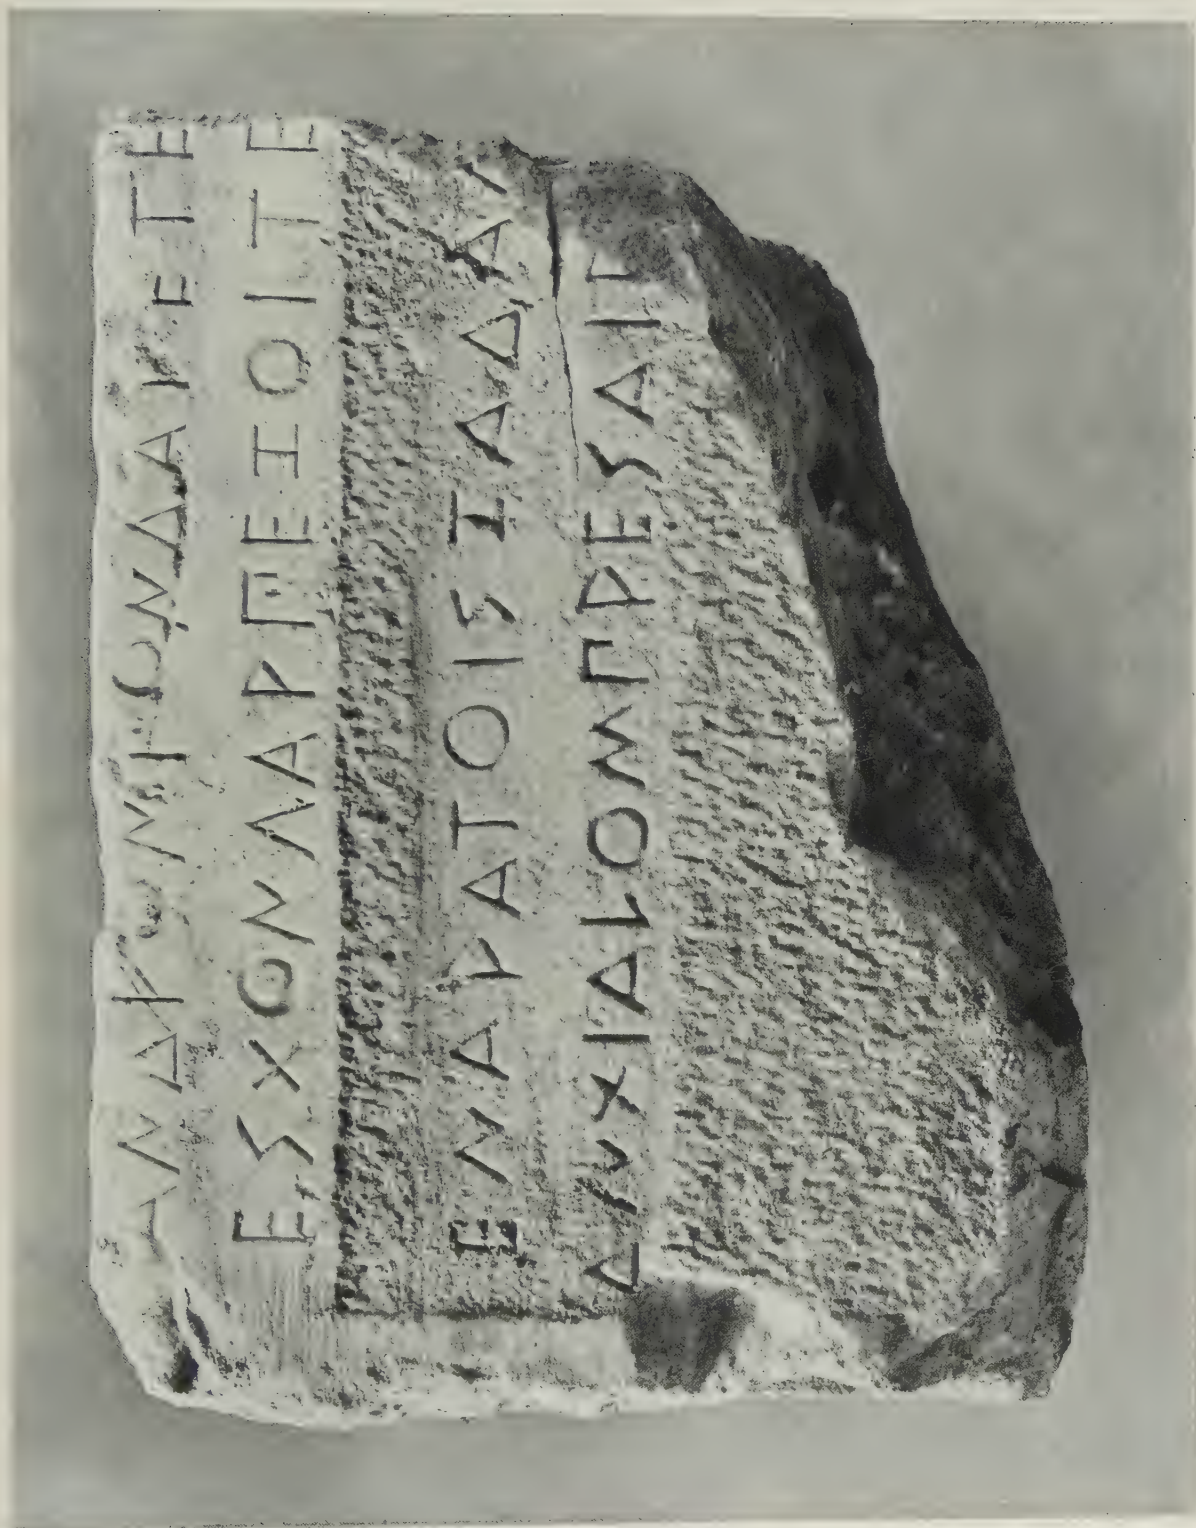 ΑΝΔΡΟΝΤΟΝΔΑΡΕΤΕ
ΕΣΧΟΝΓΑΡΠΕΖΟΙΤΕ
ΕΝΑΡΑΤΟΙΣΖΑΔΑΜ
ΑΝΧΙΑΛΟΜΠΡΕΣΑΙΡ